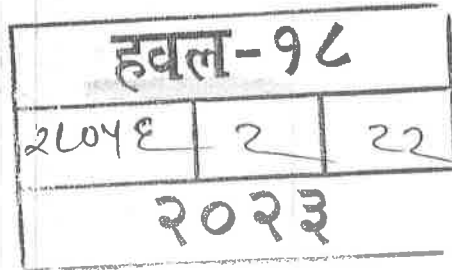 हवल-१८
२८०५६ २ २२
२०२३